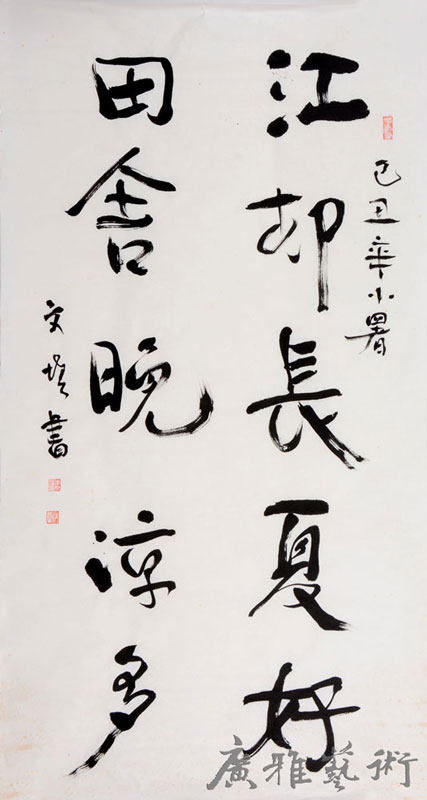 己丑年小暑
江邨長夏好
田舍晚涼多
文書
廣雅藝術